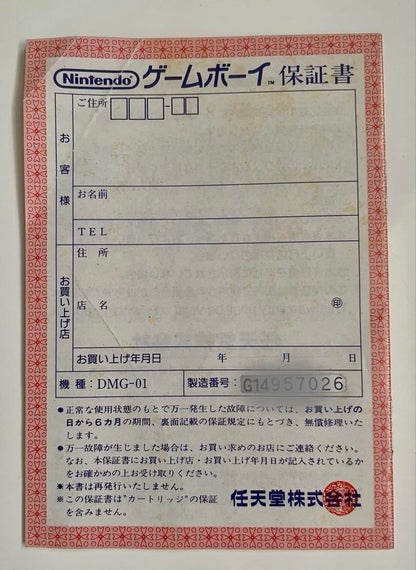 Nintendo ゲームボーイ™ 保証書
お客様
ご住所 -
お名前
TEL
お買い上げ店
住所
店名 印
お買い上げ年月日 年 月 日
機種：DMG-01 製造番号：G14957026
●正常な使用状態のもとで万一発生した故障については、お買い上げの
日から6カ月の期間、裏面記載の保証規定にもとづき、無償修理いた
します。
●万一故障が生じました場合は、お買い求めのお店にご連絡ください。
なお、本保証書にお買い上げ店・お買い上げ年月日が記入されているか
をお確かめの上お受け取りください。
＊本書は再発行いたしません。
※この保証書は"カートリッジ"の保証
を含みません。
任天堂株式会社